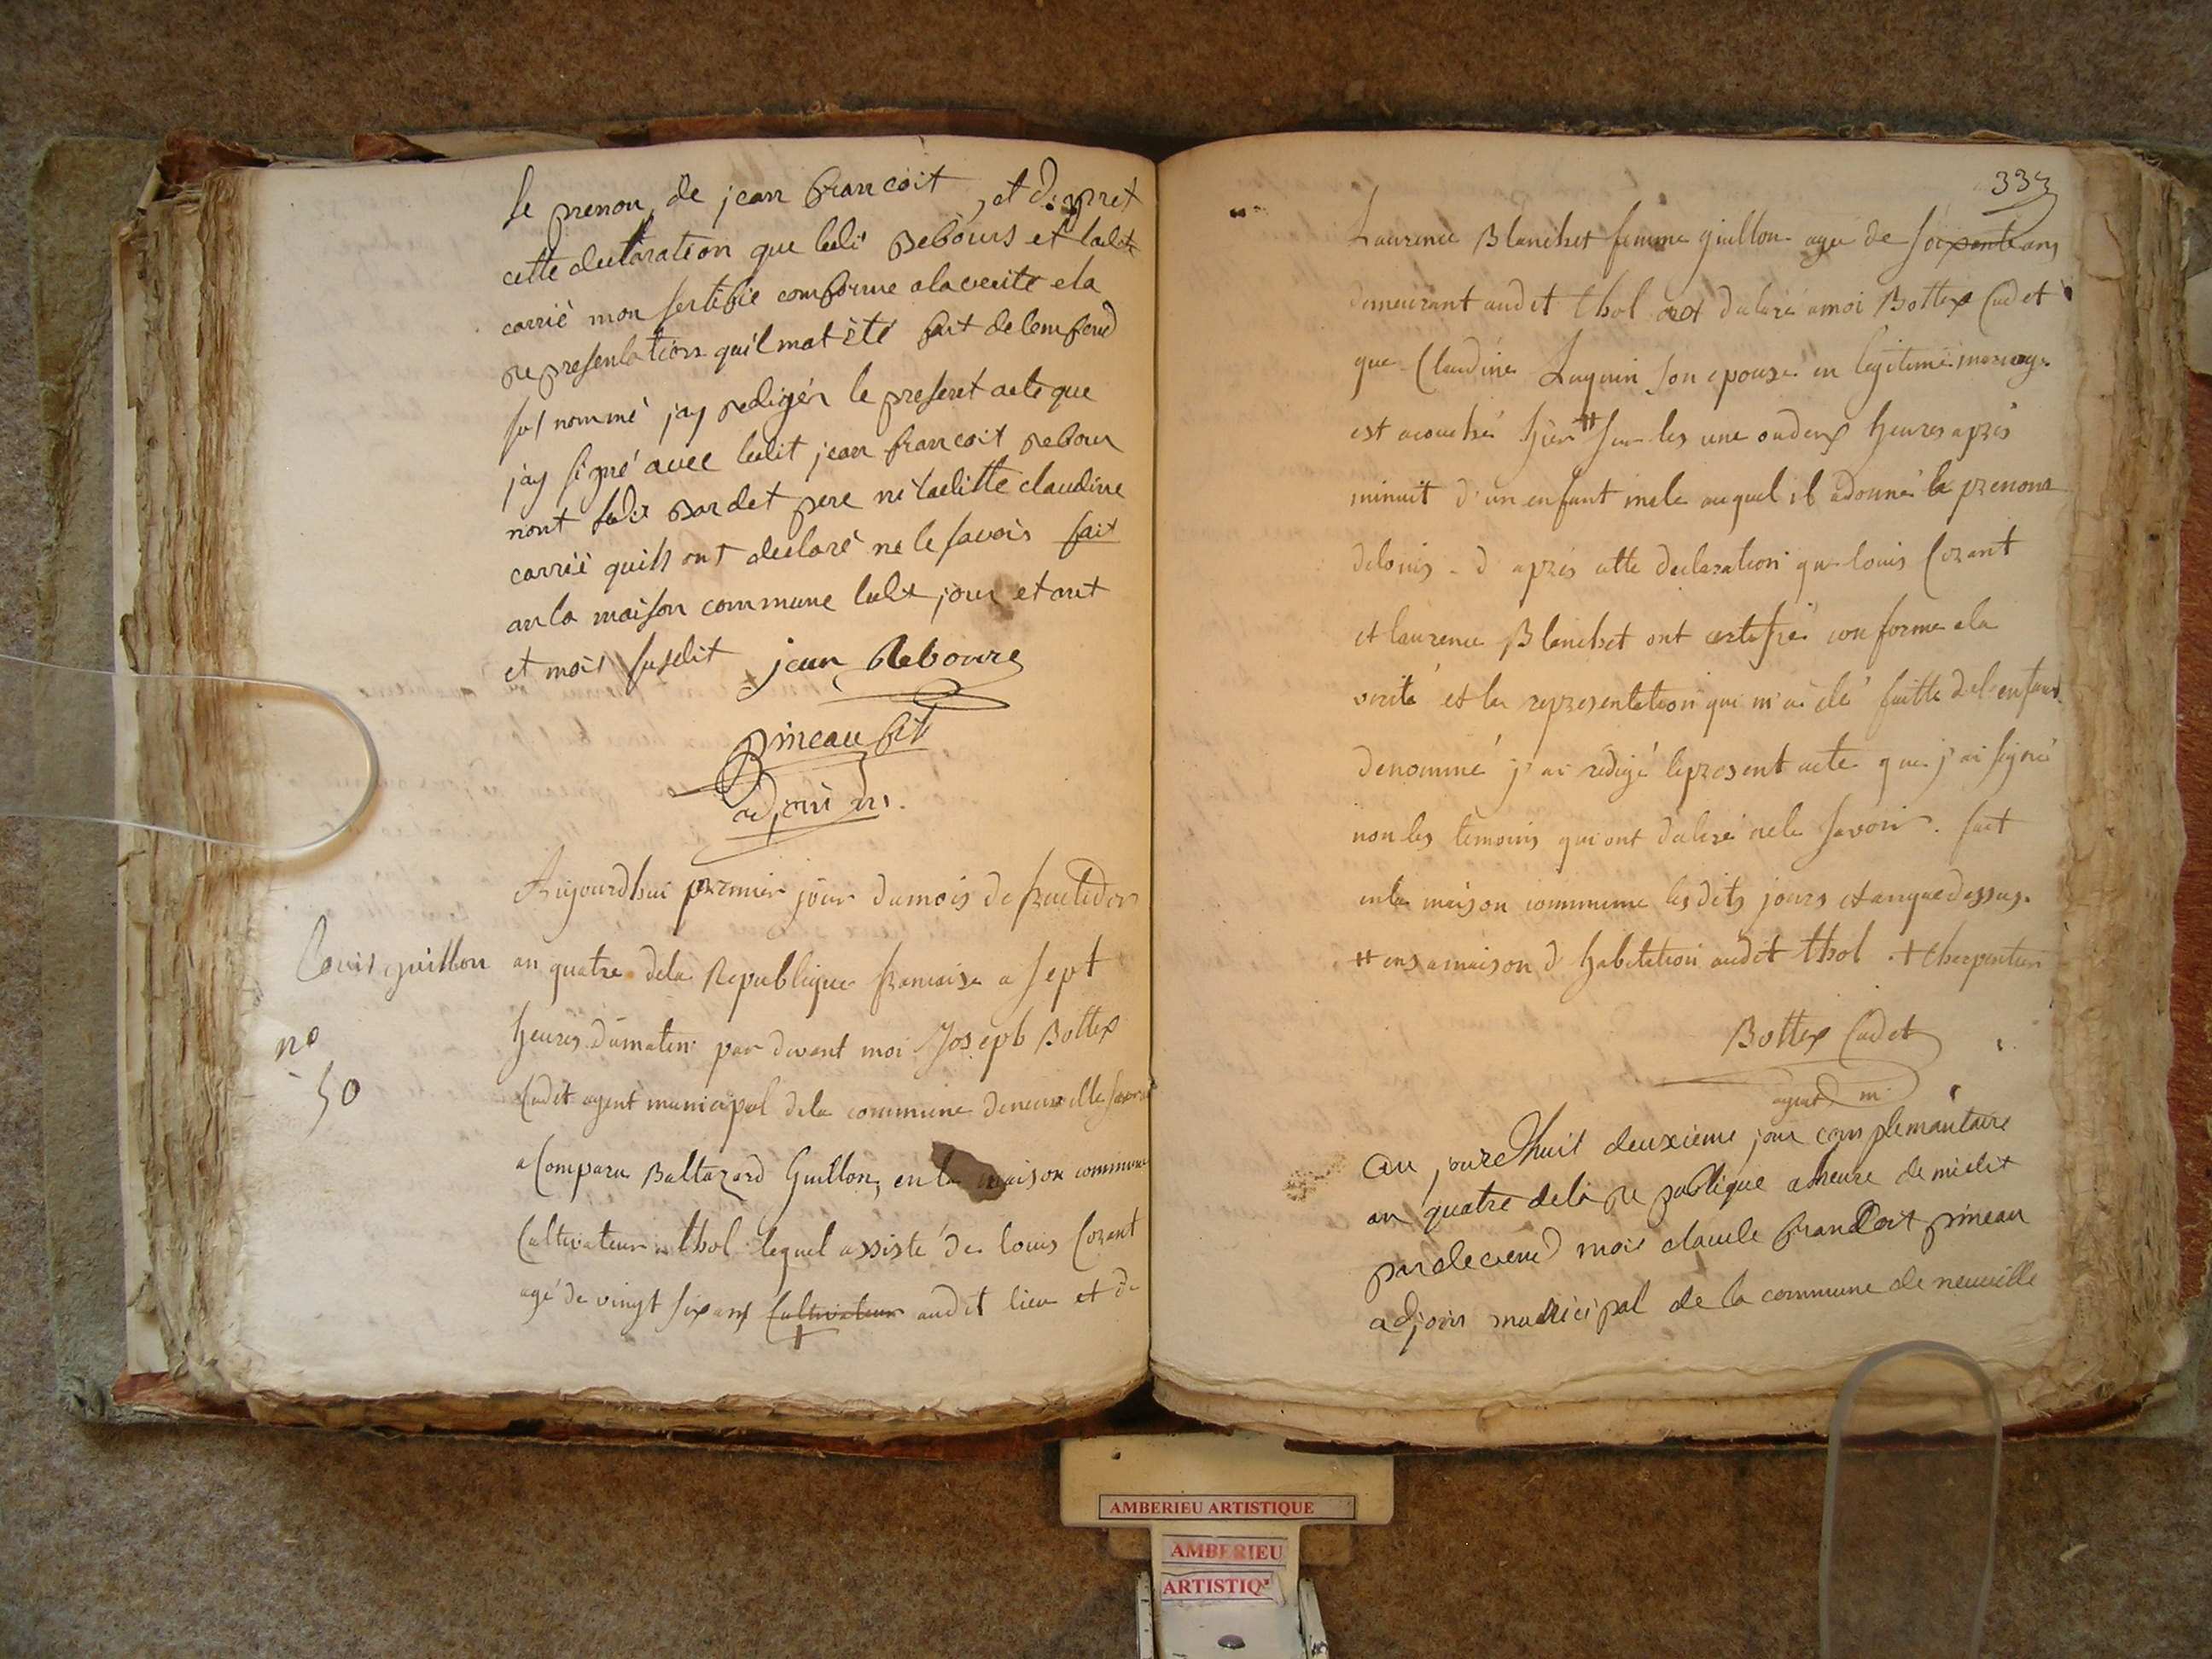 le prenon de jean francoit, et d'apret
cette declaration que ledit Rebours et ladit
carrié mon sertifie comforme ala verite et la
representation qu'il mat été fait de lemfend
sus nommé jay redigér le preseret acte que
jay signé avec ledit jean francoit rebour
nont ledit pardet pere ni laditte claudine
carrié quils ont declaré ne le savoir fait
an la maison commune ledit jour et ant
et mois susdit jean Rebours
pineau fils
adjoin m.
Aujourdhui premier jour dumois de fructidor
Louis guillon
an quatre dela Republique francaise a sept
heures dumatin par devant moi Joseph Bottex
no
50
Cadet agent municipal dela commune deneuville
a Comparu Baltazard Guillon, en la maison commune
Cultivateur a thol lequel assisté de louis Corant
agé de vingt six ans Cultivateur audit lieu et de
+
333
Laurence Blanchet femme guillon agée de soixante ans
demeurant audit thol ont declaré amoi Bottex Cadet
que Claudine Luquin son epouse en legitime mariage
est acouchée hier # sur les une oudeux heures après
minuit d'un enfant male auquel il adonné le prenom
delouis - d'après cette declaration que louis Corant
et laurence Blanchet ont certifié conforme ala
verité et la representation qui m'a été faitte del enfant
denommé j'ai redigé lepresent acte que j'ai signé
non les temoins qui ont declaré nele savoir. fait
enla maison commune lesdits jours et anquedessus.
# ensamaison d'habitation audit thol + charpentier
Bottex Cadet
agent m
Au jourdhuit deuxieme jour complemantaire
an quatre dela republique a heure de midit
pardevend moi claude francoit pineau
adjoin municipal de la commune de neuville
AMBERIEU ARTISTIQUE
AMBERIEU
ARTISTIQ